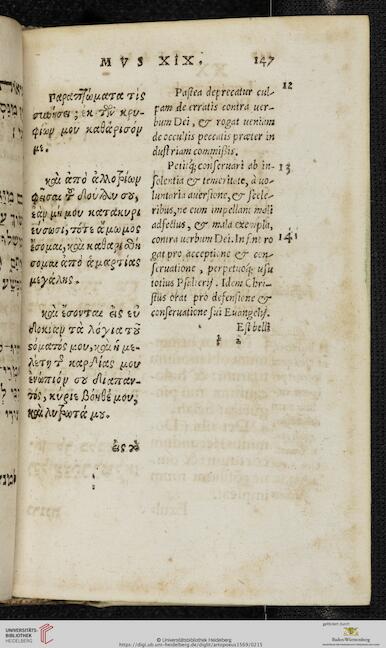 MVS XIX. 147
παραπτώματα τίς
συνήσει; ἐκ τῶν κρυ-
φίων μου καθάρισόν
με.
καὶ ἀπὸ ἀλλοτρίων
φεῖσαι τοῦ δούλου σου,
ἐὰν μή μου κατακυρι
εύσωσι, τότε ἄμωμος
ἔσομαι, καὶ καθαρισθή
σομαι ἀπὸ ἁμαρτίας
μεγάλης.
καὶ ἔσονται εἰς εὐ
δοκίαν τὰ λόγια τοῦ
στόματός μου, καὶ ἡ με-
λέτη τῆς καρδίας μου
ἐνώπιόν σου διαπαν-
τός, κύριε βοηθέ μου,
καὶ λυτρωτά μου.
εἰς τὸ
12
Postea deprecatur cul-
pam de erratis contra ver-
bum Dei, & rogat veniam
de occultis peccatis præter in
dustriam commissis.
Petitq; conseruari ab in- 13
solentia & temeritate, à vo-
luntaria auersione, & scele-
ribus, ne eum impellant mali
adfectus, & mala exempla,
contra verbum Dei. In fine ro 14
gat pro acceptione & con-
seruatione, perpetuoq; usu
totius Psalterij. Idem Chri-
stus orat pro defensione &
conseruatione sui Euangelij.
Est belli
UNIVERSITÄTS-
BIBLIOTHEK
HEIDELBERG
© Universitätsbibliothek Heidelberg
https://digi.ub.uni-heidelberg.de/diglit/artopoeus1569/0215
gefördert durch
Baden-Württemberg